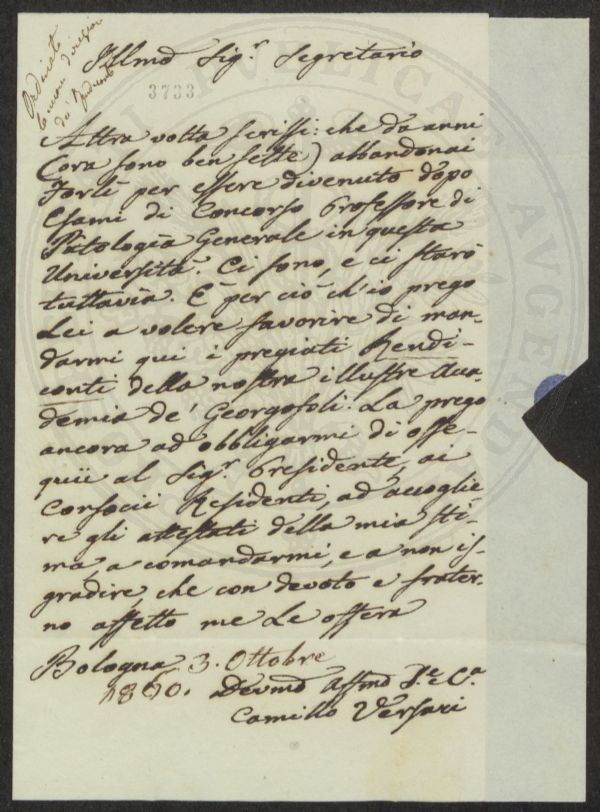 Ordinato
Illmo Sigr. Segretario
3733
Altra volta scrissi: che da anni
(ora sono ben sette) abbandonai
Forlì per essere divenuto dopo
Esami di Concorso Professore di
Patologia Generale in questa
Università. Ci sono, e ci starò
tuttavia. E per ciò ch'io prego
Lei a volere favorire di man-
darmi qui i pregiati Rendi-
conti della nostra illustre Acca-
demia de' Georgofili. La prego
ancora ad obbligarmi di osse-
quii al Sigr. Presidente, ai
Consocii Residenti, ad accoglie-
re gli attestati della mia sti-
ma, a comandarmi, e a non is-
gradire, che con devoto e frater-
no affetto me Le offera
Bologna 3. Ottobre
1860. Devmo Affmo
Camillo Versari
PVBLICAE
AVGENDAE